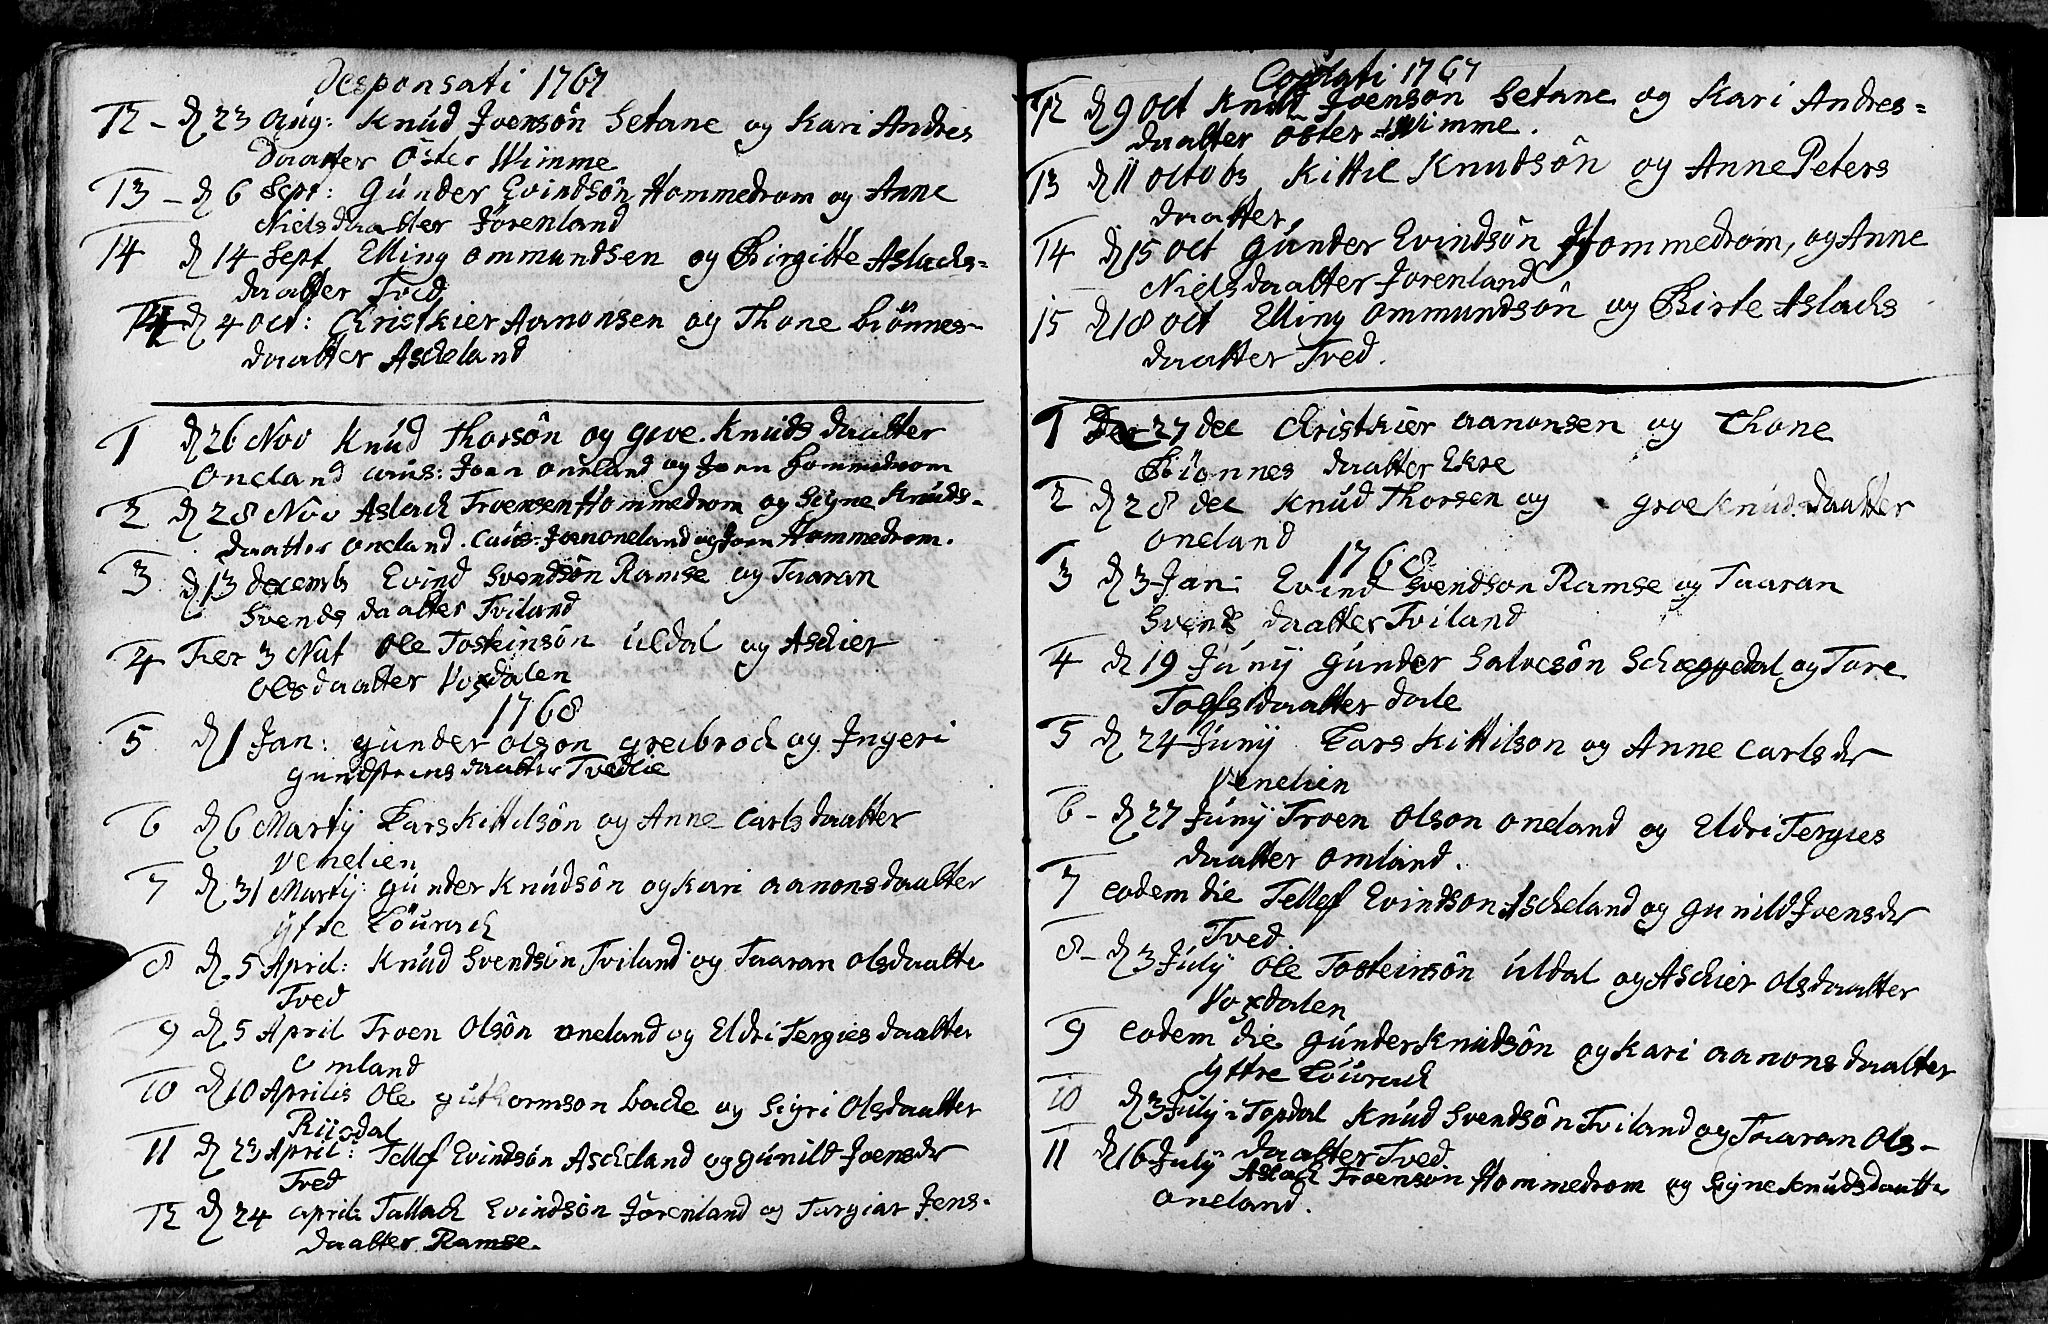 Desponsati 1767
12 - d 23 Aug: Knud Joensôn Setane og Kari Andres
daatter Öster Wimme
13 - d 6 Sept: Gunder Evindsôn Hommedrom og Anne
Nielsdaatter Jorenland
14 d 14 Sept Elling Ommundsen og Birgitte Aslachs=
daatter Tved
d 4 Oct: Christkier Aanonsen og Thone biönnes-
daatter Ascheland
1 d 26 Nov Knud Thorsôn og groe Knuds daatter
Oneland caus: Joen Oneland og Joen Hommedrom
2 d 28 Nov Aslach Troensen Hommedrom og Signe Knuds-
daatter Oneland. Caus: Joen oneland og Joen Hommedrom.
3 d 13 decemb Evind Svendsôn Ramse og Taaran
Svends daatter Tviland
4 Fer 3 Nat Ole Tosteinsôn Uldal og Aschier
Olsdaatter Voxdalen
1768
5 d 1 Jan: gunder Olson greibrock og Jngeri
gundsteens daatter Tvedlie
6 d 6 Martij Lars Kittilsôn og Anne Carlsdaatter
Venelien
7 d 31 Martij: gunder Knudsôn og Kari aanonsdaatter
ytre Löurach
8 d 5 April: Knud Svendsôn Tviland og Taaran Olsdaatte
Tved
9 d 5 April Troen Olsôn oneland og Eldri Tergiesdaatter
Omland
10 d 10 Aprilis Ole guthormson backe og Sigri Olsdaatter
Riisdal
11 d 23 April: Tellef Evindsôn Ascheland og gunild Joensdr
Tved
12 d 24 april: Tallach Evindsôn Jorenland og Targiar Jens-
daatter Ramse.
Copulati 1767
12 d 9 Oct Knud Joensôn Setane og Kari Andres=
daatter Öster Wimme.
13 d 11 Octob Kittil Knudsôn og Anne Peters
daatter
14 d 15 Oct Gunder Evindsôn Hommedrom, og Anne
Nielsdaatter Jorenland
15 d 18 Oct Elling Ommundsôn og Birte Aslachs
daatter Tved.
1 27 dec Christkier aanonsen og Thone
Biönnes daatter Ekse
2 d 28 dec Knud Thorsen og groe Knudsdaatter
oneland
1768
3 d 3 Jan: Evind Svendson Ramse og Taaran
Svends daatter Tviland
4 d 19 Junij gunder Salvesôn Schæggedal og Tore
daatter dale
5 d 24 Junij Lars Kittilson og Anne Carlsdr
Venelien
6 - d 27 Junij Troen Olson oneland og Eldri Tergies
daatter omland.
7 eodem die Tellef Evindson Ascheland og gunild Joensdr
Tved
8 - d 3 Julij Ole Tosteinsôn Uldal og Aschier Olsdaatter
Voxdalen
9 eodem die gunder Knudsôn og Kari aanons daatter
Yttre Löurach
10 d 3 Julij i Topdal Knud Svendsôn Tviland og Taaran Ols-
daatter Tved
11 d 16 July Aslach Troensôn Hommedrom og Signe Knudsdaatte
oneland.